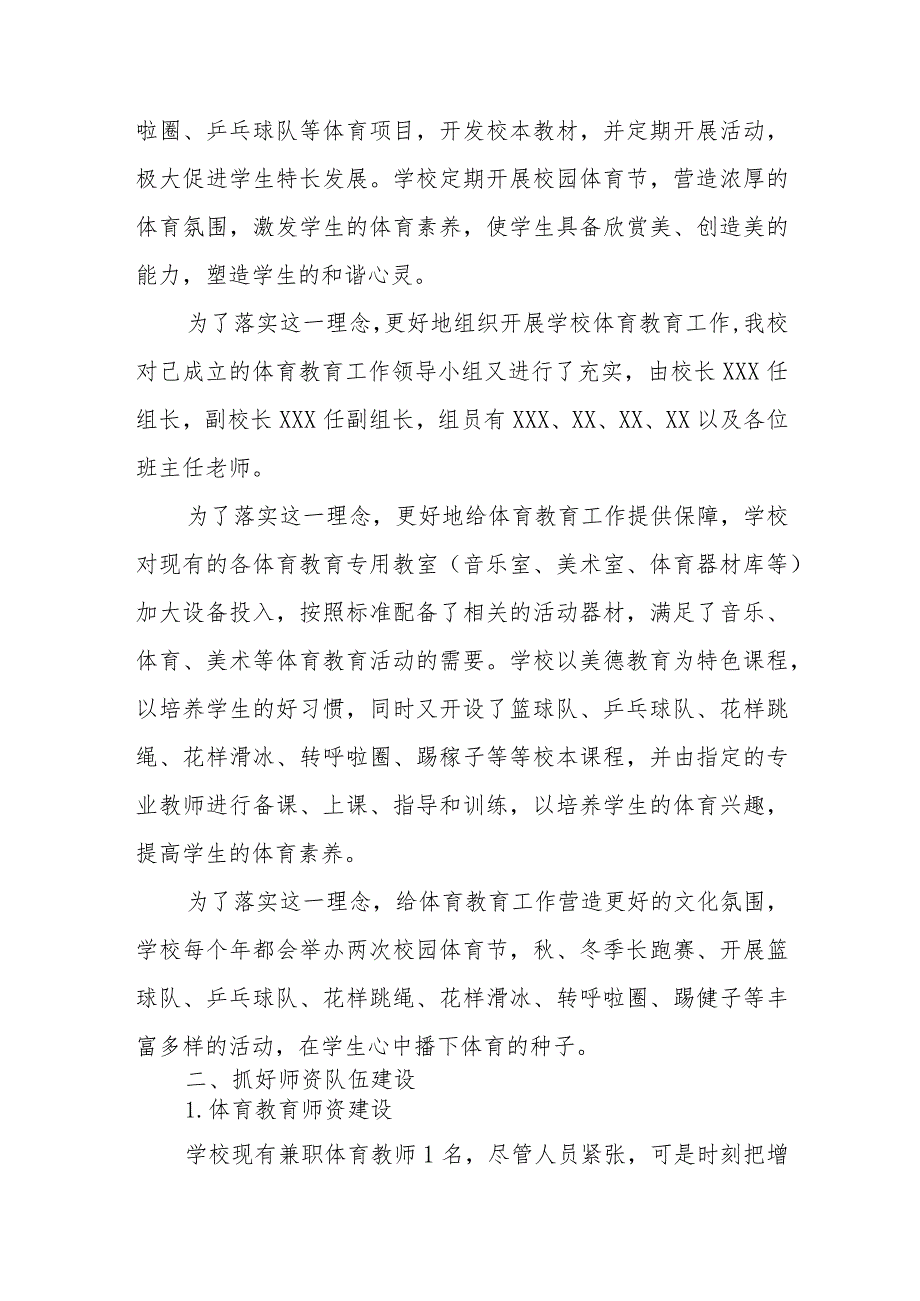 啦圈、乒乓球队等体育项目，开发校本教材，并定期开展活动，
极大促进学生特长发展。学校定期开展校园体育节，营造浓厚的
体育氛围，激发学生的体育素养，使学生具备欣赏美、创造美的
能力，塑造学生的和谐心灵。
为了落实这一理念,更好地组织开展学校体育教育工作,我校
对己成立的体育教育工作领导小组又进行了充实，由校长 XXX 任
组长，副校长 XXX 任副组长，组员有 XXX、XX、XX、XX 以及各位
班主任老师。
为了落实这一理念，更好地给体育教育工作提供保障，学校
对现有的各体育教育专用教室（音乐室、美术室、体育器材库等）
加大设备投入，按照标准配备了相关的活动器材，满足了音乐、
体育、美术等体育教育活动的需要。学校以美德教育为特色课程，
以培养学生的好习惯，同时又开设了篮球队、乒乓球队、花样跳
绳、花样滑冰、转呼啦圈、踢稼子等等校本课程，并由指定的专
业教师进行备课、上课、指导和训练，以培养学生的体育兴趣，
提高学生的体育素养。
为了落实这一理念，给体育教育工作营造更好的文化氛围，
学校每个年都会举办两次校园体育节，秋、冬季长跑赛、开展篮
球队、乒乓球队、花样跳绳、花样滑冰、转呼啦圈、踢健子等丰
富多样的活动，在学生心中播下体育的种子。
二、抓好师资队伍建设
1.体育教育师资建设
学校现有兼职体育教师 1 名，尽管人员紧张，可是时刻把增